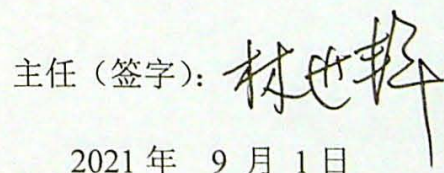 主任（签字）：林世
2021 年 9 月 1 日